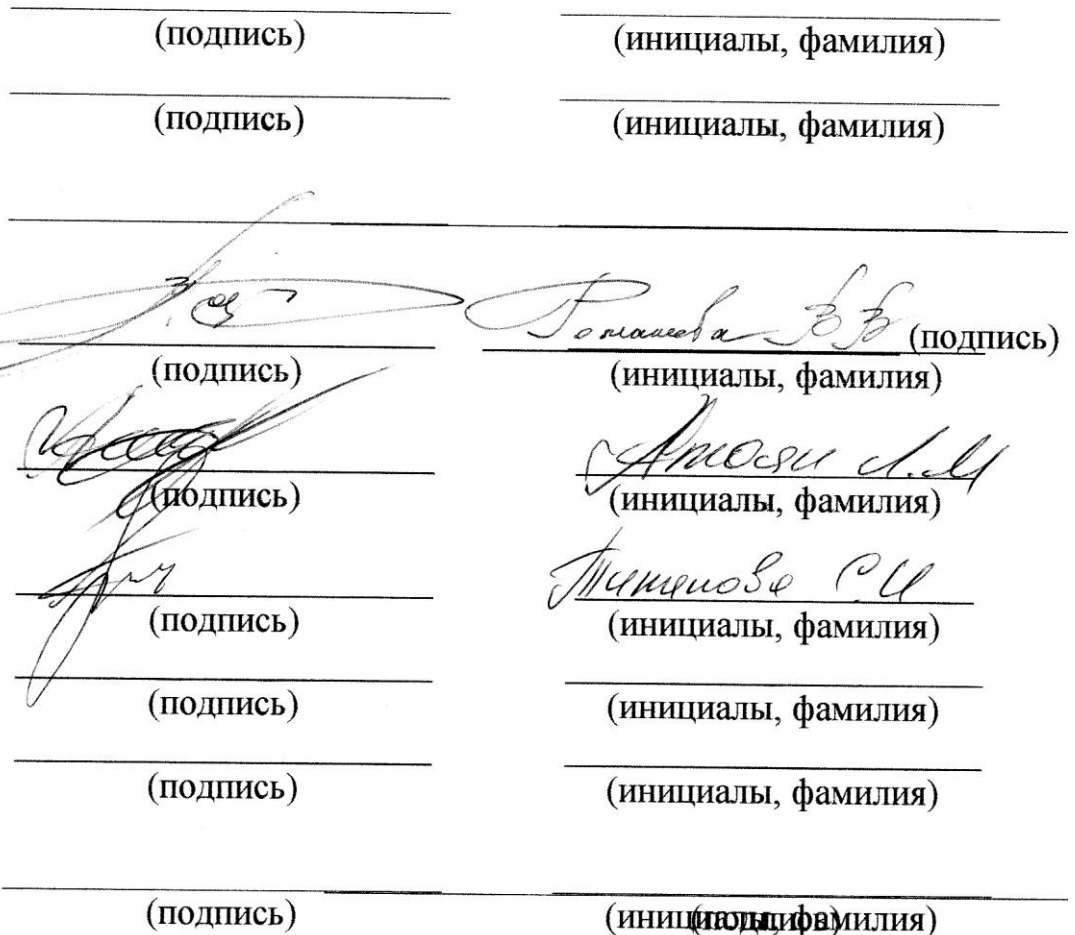 (подпись) (инициалы, фамилия)
(подпись) (инициалы, фамилия)
Романова В В (подпись)
(подпись) (инициалы, фамилия)
Атоян А.М
(подпись) (инициалы, фамилия)
С.И
(подпись) (инициалы, фамилия)
(подпись) (инициалы, фамилия)
(подпись) (инициалы, фамилия)
(подпись) (инициалы, фамилия)
(подпись)